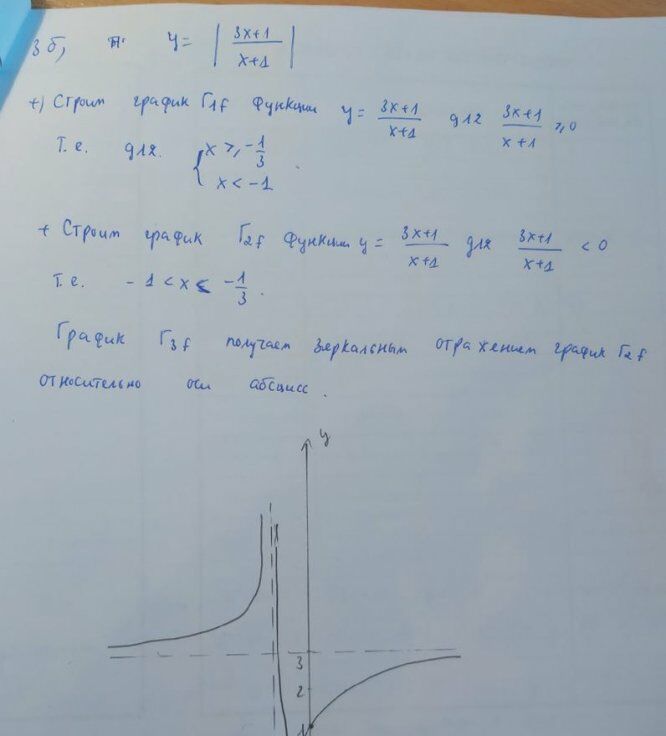 3 б, y = | (3x+1)/(x+1) |
+) Строим график Г1f Функции y = (3x+1)/(x+1) для (3x+1)/(x+1) ⩾ 0
Т.е. для. { x ⩾ -1/3
x < -1 .
+ Строим график Г2f Функции y = (3x+1)/(x+1) для (3x+1)/(x+1) < 0
Т.е. - 1 < x < -1/3 .
График Г3f получаем зеркальным отражением график Г2f
относительно оси абсцисс .
y
3
2
1